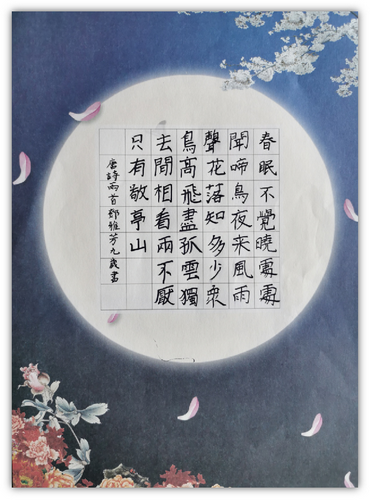 春眠不覺曉處處
聞啼鳥夜来風雨
聲花落知多少衆
鳥高飛盡孤雲獨
去間相看兩不厭
只有敬亭山
唐詩兩首芳九歲書